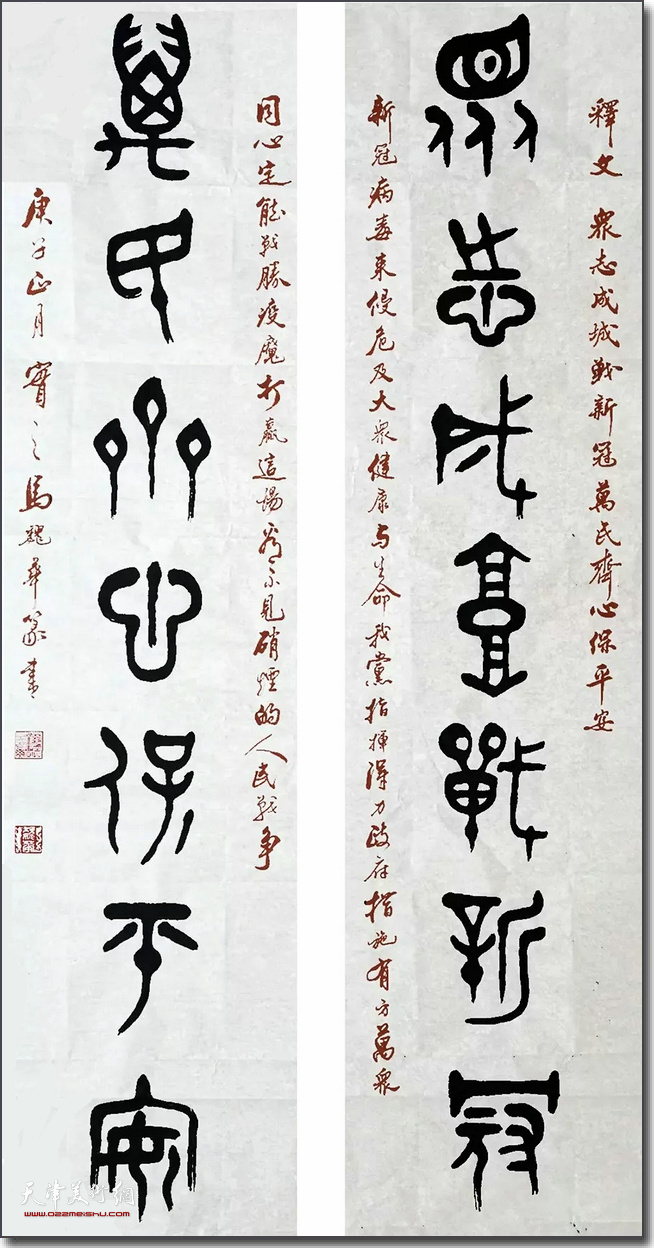 釋文 衆志成城戰新冠萬民齊心保平安
衆志成城戰新冠
新冠病毒來侵危及大衆健康与生命我黨指揮得力政府措施有方萬衆
同心定能戰勝疫魔打贏這場看不見硝煙的人民戰争
萬民齊心保平安
庚子正月 馬魏篆書
天津美術網
www.022meishu.com